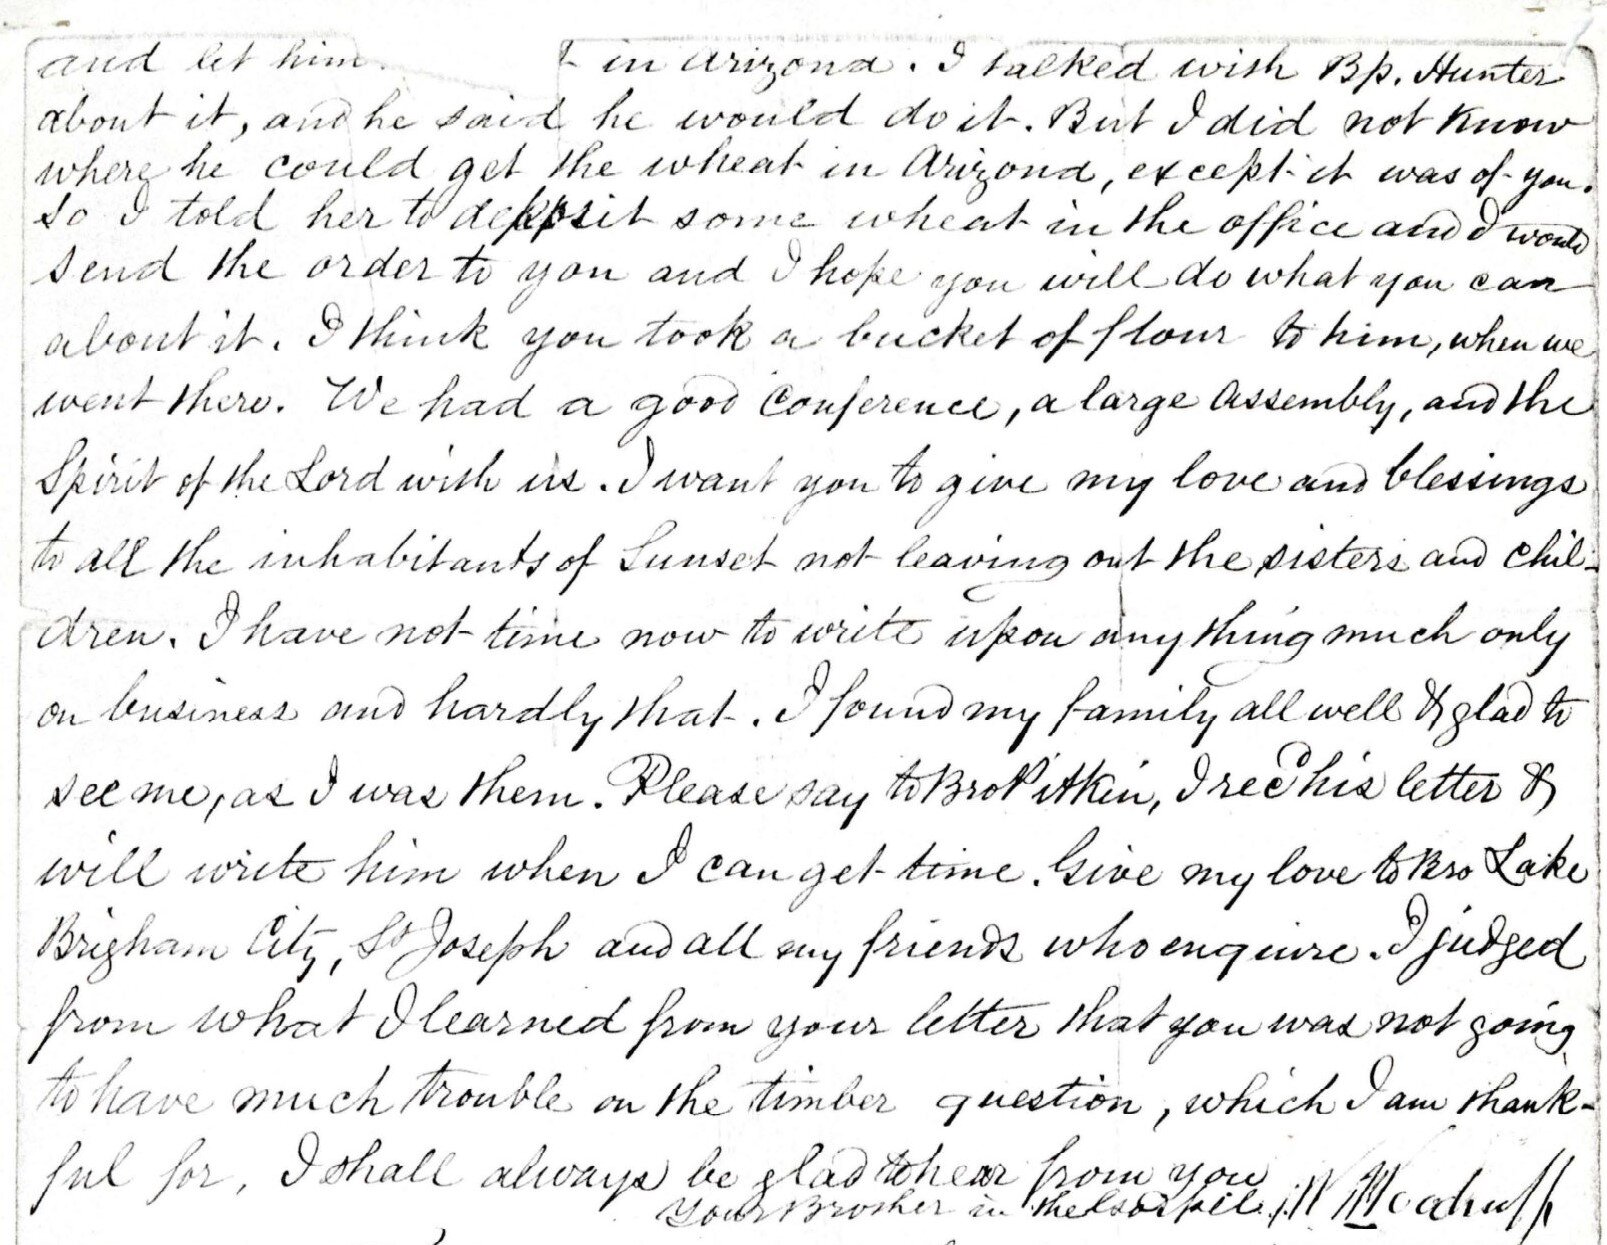 and let him in Arizona. I talked with Bp. Hunter
about it, and he said he would do it. But I did not know
where he could get the wheat in Arizona, except it was of you.
So I told her to deposit some wheat in the office and I would
send the order to you and I hope you will do what you can
about it. I think you took a bucket of flour to him, when we
went there. We had a good Conference, a large assembly, and the
Spirit of the Lord with us. I want you to give my love and blessings
to all the inhabitants of Sunset not leaving out the sisters and chil-
dren. I have not time now to write upon any thing much only
on business and hardly that. I found my family all well & glad to
see me, as I was them. Please say to Bro Pitkin, I recd his letter &
will write him when I can get time. Give my love to Bro Lake
Brigham City, St Joseph and all my friends who enquire. I judged
from what I learned from your letter that you was not going
to have much trouble on the timber question, which I am thank-
ful for, I shall always be glad to hear from you
Your Brother in the Gospel. W Woodruff